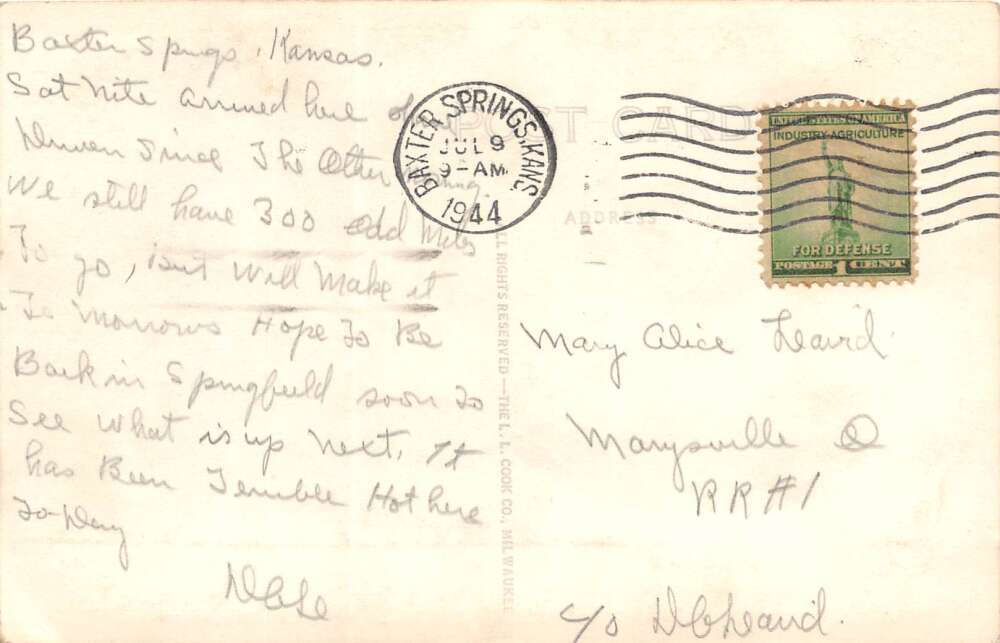 Baxter Springs, Kansas.
Sat Nite arrived here
Driven Since The Other
We still have 300 odd Miles
To go, but Will Make it
To morrow Hope To Be
Back in Springfield soon To
See What is up Next. It
has Been Terrible Hot here
To-Day
BAXTER SPRINGS, KANS.
JUL 9
9-AM
1944
POST CARD
ADDRESS
UNITED STATES OF AMERICA
INDUSTRY-AGRICULTURE
FOR DEFENSE
POSTAGE 1 CENT
ALL RIGHTS RESERVED—THE L. L. COOK CO., MILWAUKEE
Mary Alice
Marysville O
RR#1
c/o